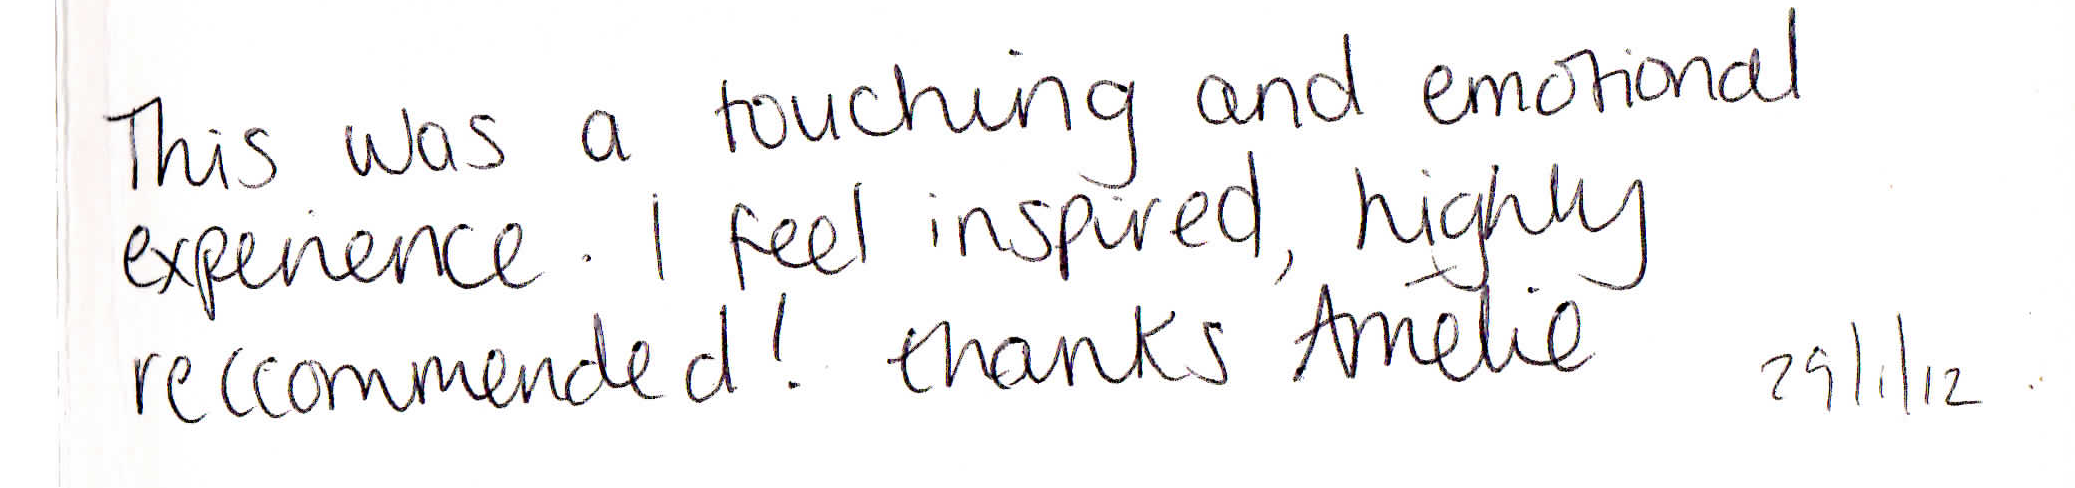 This was a touching and emotional
experience. I feel inspired, highly
reccommended! thanks Amelie 29/1/12